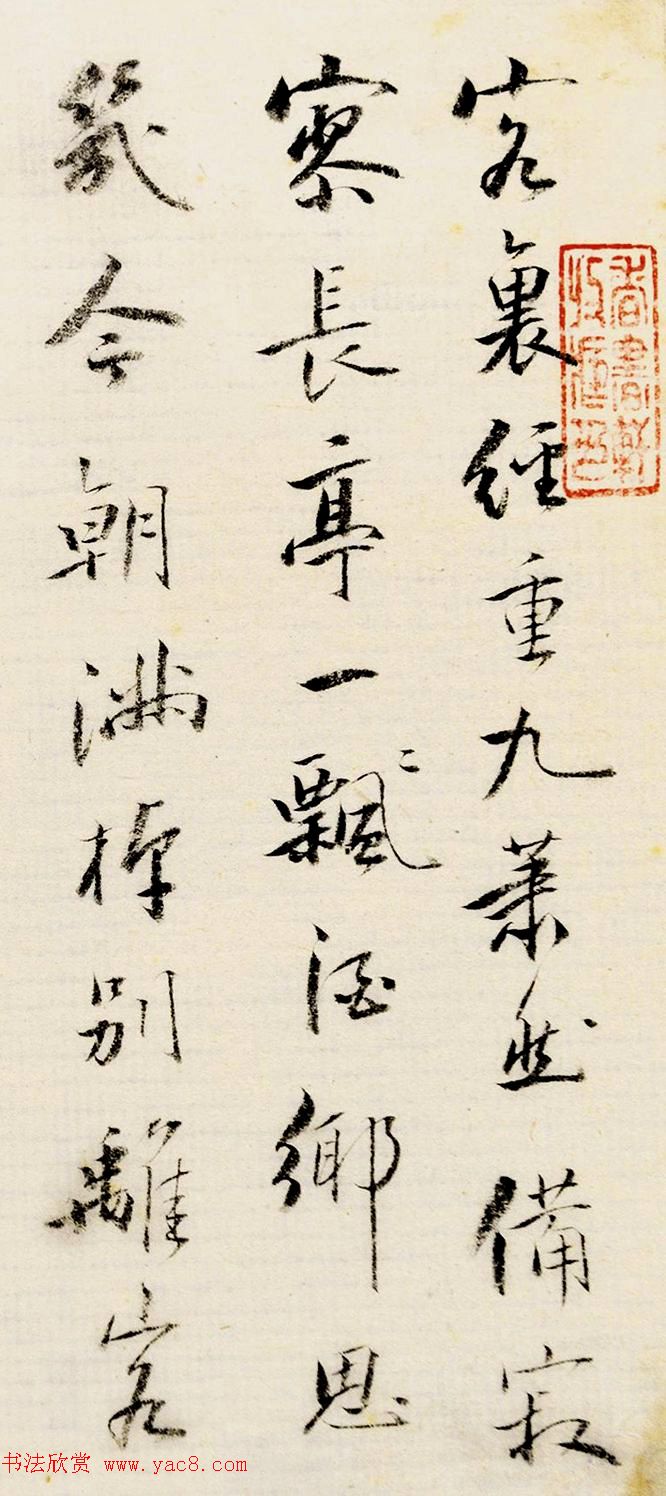 客裏經重九蕭然備寂
寥長亭一飄酒鄉思
幾今朝滿棹別離客
书法欣赏 www.yac8.com